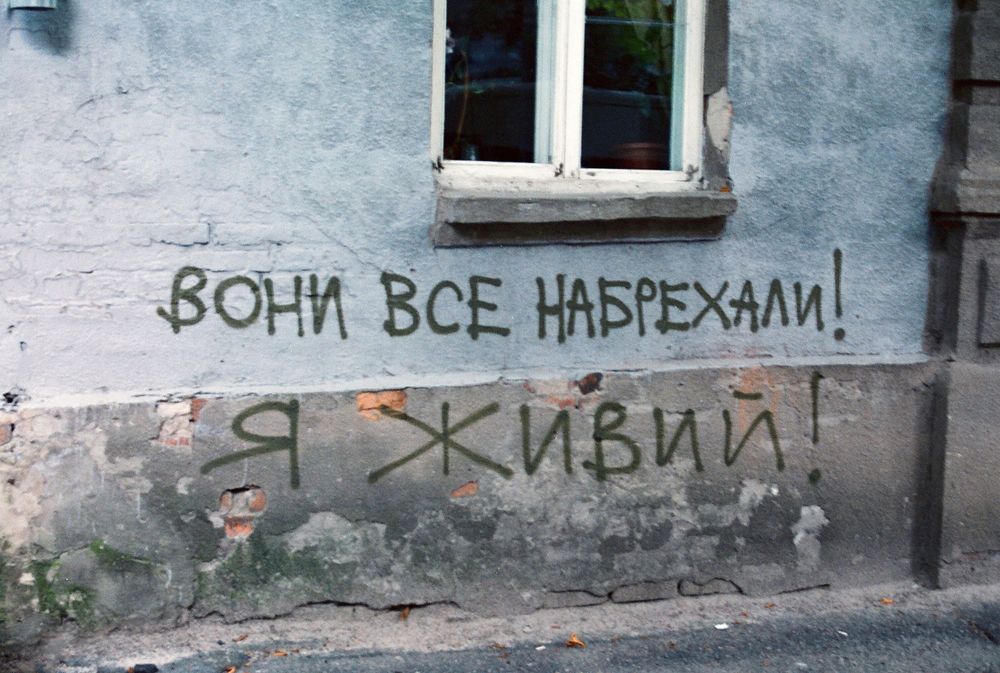 ВОНИ ВСЕ НАБРЕХАЛИ!
Я ЖИВИЙ!